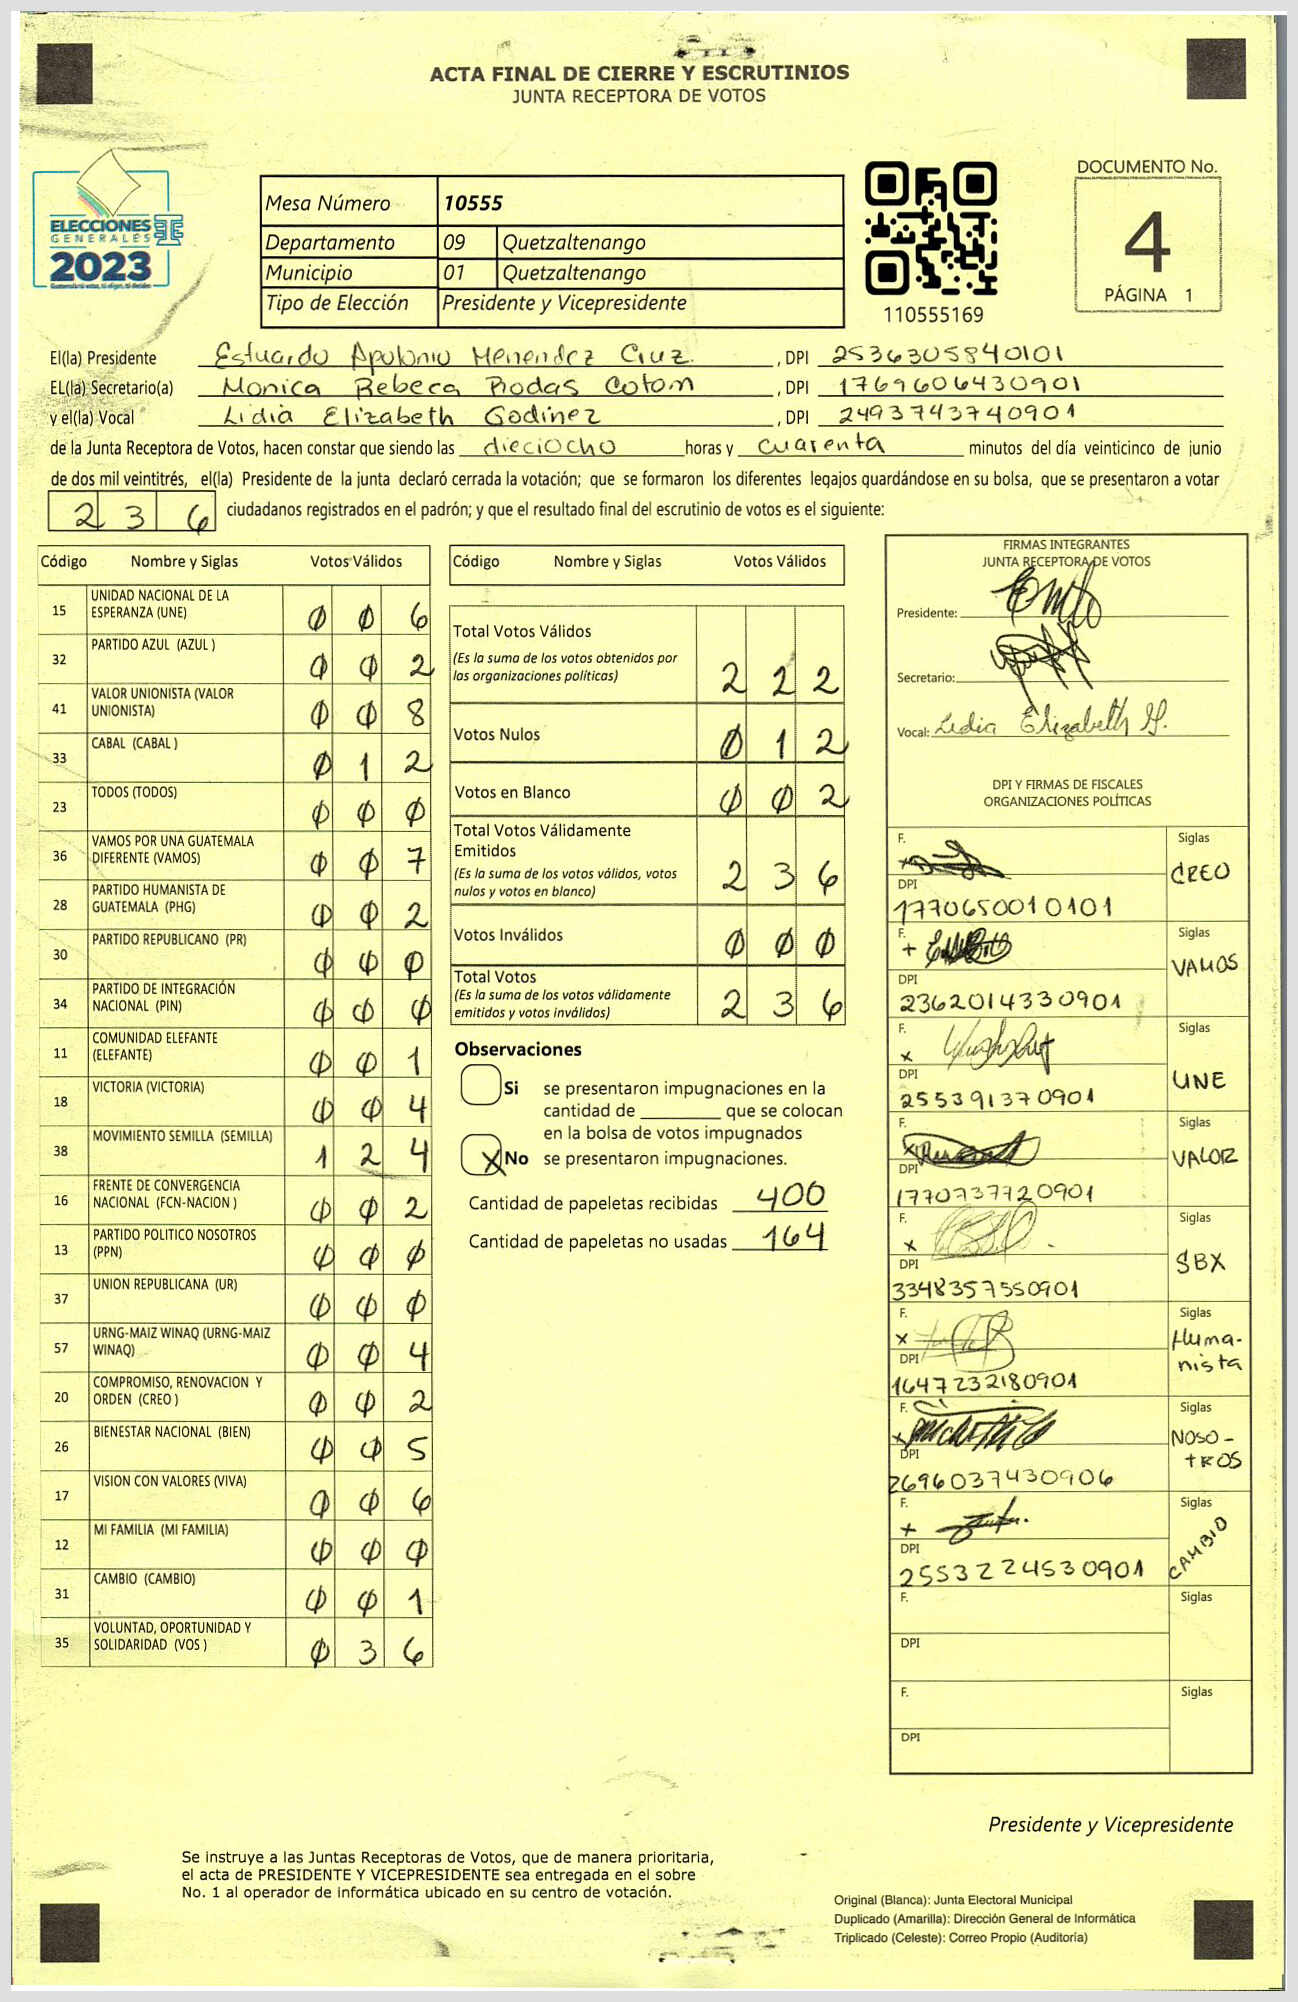 ACTA FINAL DE CIERRE Y ESCRUTINIOS
JUNTA RECEPTORA DE VOTOS
ELECCIONES
GENERALES
2023
Mesa Número 10555
Departamento 09 Quetzaltenango
Municipio 01 Quetzaltenango
Tipo de Elección Presidente y Vicepresidente
110555169
DOCUMENTO No.
4
PÁGINA 1
El(la) Presidente Estuardo Apolonio Menendez Cruz. , DPI 2536305840101
EL(la) Secretario(a) Monica Rebeca Rodas Cotom , DPI 1769606430901
y el(la) Vocal Lidia Elizabeth Godínez , DPI 2493743740901
de la Junta Receptora de Votos, hacen constar que siendo las dieciocho horas y cuarenta minutos del día veinticinco de junio
de dos mil veintitrés, el(la) Presidente de la junta declaró cerrada la votación; que se formaron los diferentes legajos guardándose en su bolsa, que se presentaron a votar
236 ciudadanos registrados en el padrón; y que el resultado final del escrutinio de votos es el siguiente:
Código Nombre y Siglas Votos Válidos
15 UNIDAD NACIONAL DE LA ESPERANZA (UNE) 0 0 6
32 PARTIDO AZUL (AZUL ) 0 0 2
41 VALOR UNIONISTA (VALOR UNIONISTA) 0 0 8
33 CABAL (CABAL ) 0 1 2
23 TODOS (TODOS) 0 0 0
36 VAMOS POR UNA GUATEMALA DIFERENTE (VAMOS) 0 0 7
28 PARTIDO HUMANISTA DE GUATEMALA (PHG) 0 0 2
30 PARTIDO REPUBLICANO (PR) 0 0 0
34 PARTIDO DE INTEGRACIÓN NACIONAL (PIN) 0 0 0
11 COMUNIDAD ELEFANTE (ELEFANTE) 0 0 1
18 VICTORIA (VICTORIA) 0 0 4
38 MOVIMIENTO SEMILLA (SEMILLA) 1 2 4
16 FRENTE DE CONVERGENCIA NACIONAL (FCN-NACION ) 0 0 2
13 PARTIDO POLITICO NOSOTROS (PPN) 0 0 0
37 UNION REPUBLICANA (UR) 0 0 0
57 URNG-MAIZ WINAQ (URNG-MAIZ WINAQ) 0 0 4
20 COMPROMISO, RENOVACION Y ORDEN (CREO ) 0 0 2
26 BIENESTAR NACIONAL (BIEN) 0 0 5
17 VISION CON VALORES (VIVA) 0 0 6
12 MI FAMILIA (MI FAMILIA) 0 0 0
31 CAMBIO (CAMBIO) 0 0 1
35 VOLUNTAD, OPORTUNIDAD Y SOLIDARIDAD (VOS ) 0 3 6
Código Nombre y Siglas Votos Válidos
Total Votos Válidos
(Es la suma de los votos obtenidos por
las organizaciones políticas) 2 2 2
Votos Nulos 0 1 2
Votos en Blanco 0 0 2
Total Votos Válidamente
Emitidos
(Es la suma de los votos válidos, votos
nulos y votos en blanco) 2 3 6
Votos Inválidos 0 0 0
Total Votos
(Es la suma de los votos válidamente
emitidos y votos inválidos) 2 3 6
Observaciones
Si se presentaron impugnaciones en la
cantidad de ________ que se colocan
en la bolsa de votos impugnados
X No se presentaron impugnaciones.
Cantidad de papeletas recibidas 400
Cantidad de papeletas no usadas 164
FIRMAS INTEGRANTES
JUNTA RECEPTORA DE VOTOS
Presidente:
Secretario:
Vocal: Lidia Elizabeth G.
DPI Y FIRMAS DE FISCALES
ORGANIZACIONES POLÍTICAS
F. x Siglas CREO
DPI 1770650010101
F. + Siglas VAMOS
DPI 2362014330901
F. x Siglas UNE
DPI 255391370901
F. x Siglas VALOR
DPI 1770737720901
F. x Siglas SBX
DPI 3348357550901
F. x Siglas Humanista
DPI 1647232180901
F. x Siglas NOSO-TROS
DPI 2696037430906
F. + Siglas CAMBIO
DPI 2553224530901
F. Siglas
DPI
F. Siglas
DPI
Presidente y Vicepresidente
Se instruye a las Juntas Receptoras de Votos, que de manera prioritaria,
el acta de PRESIDENTE Y VICEPRESIDENTE sea entregada en el sobre
No. 1 al operador de informática ubicado en su centro de votación.
Original (Blanca): Junta Electoral Municipal
Duplicado (Amarilla): Dirección General de Informática
Triplicado (Celeste): Correo Propio (Auditoría)